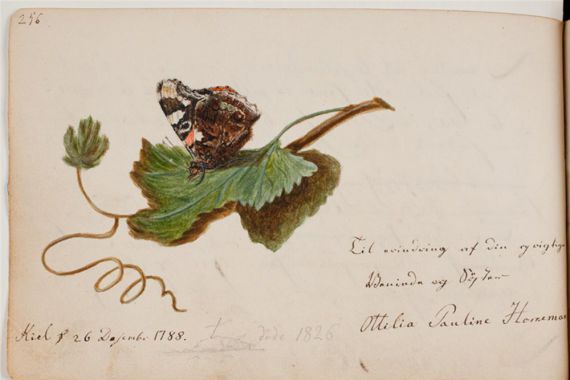 256
Til erindring af din
Veninde og Syster
Ottilia Pauline Hornemann
Kiel d 26 Desembr 1788.
døde 1826